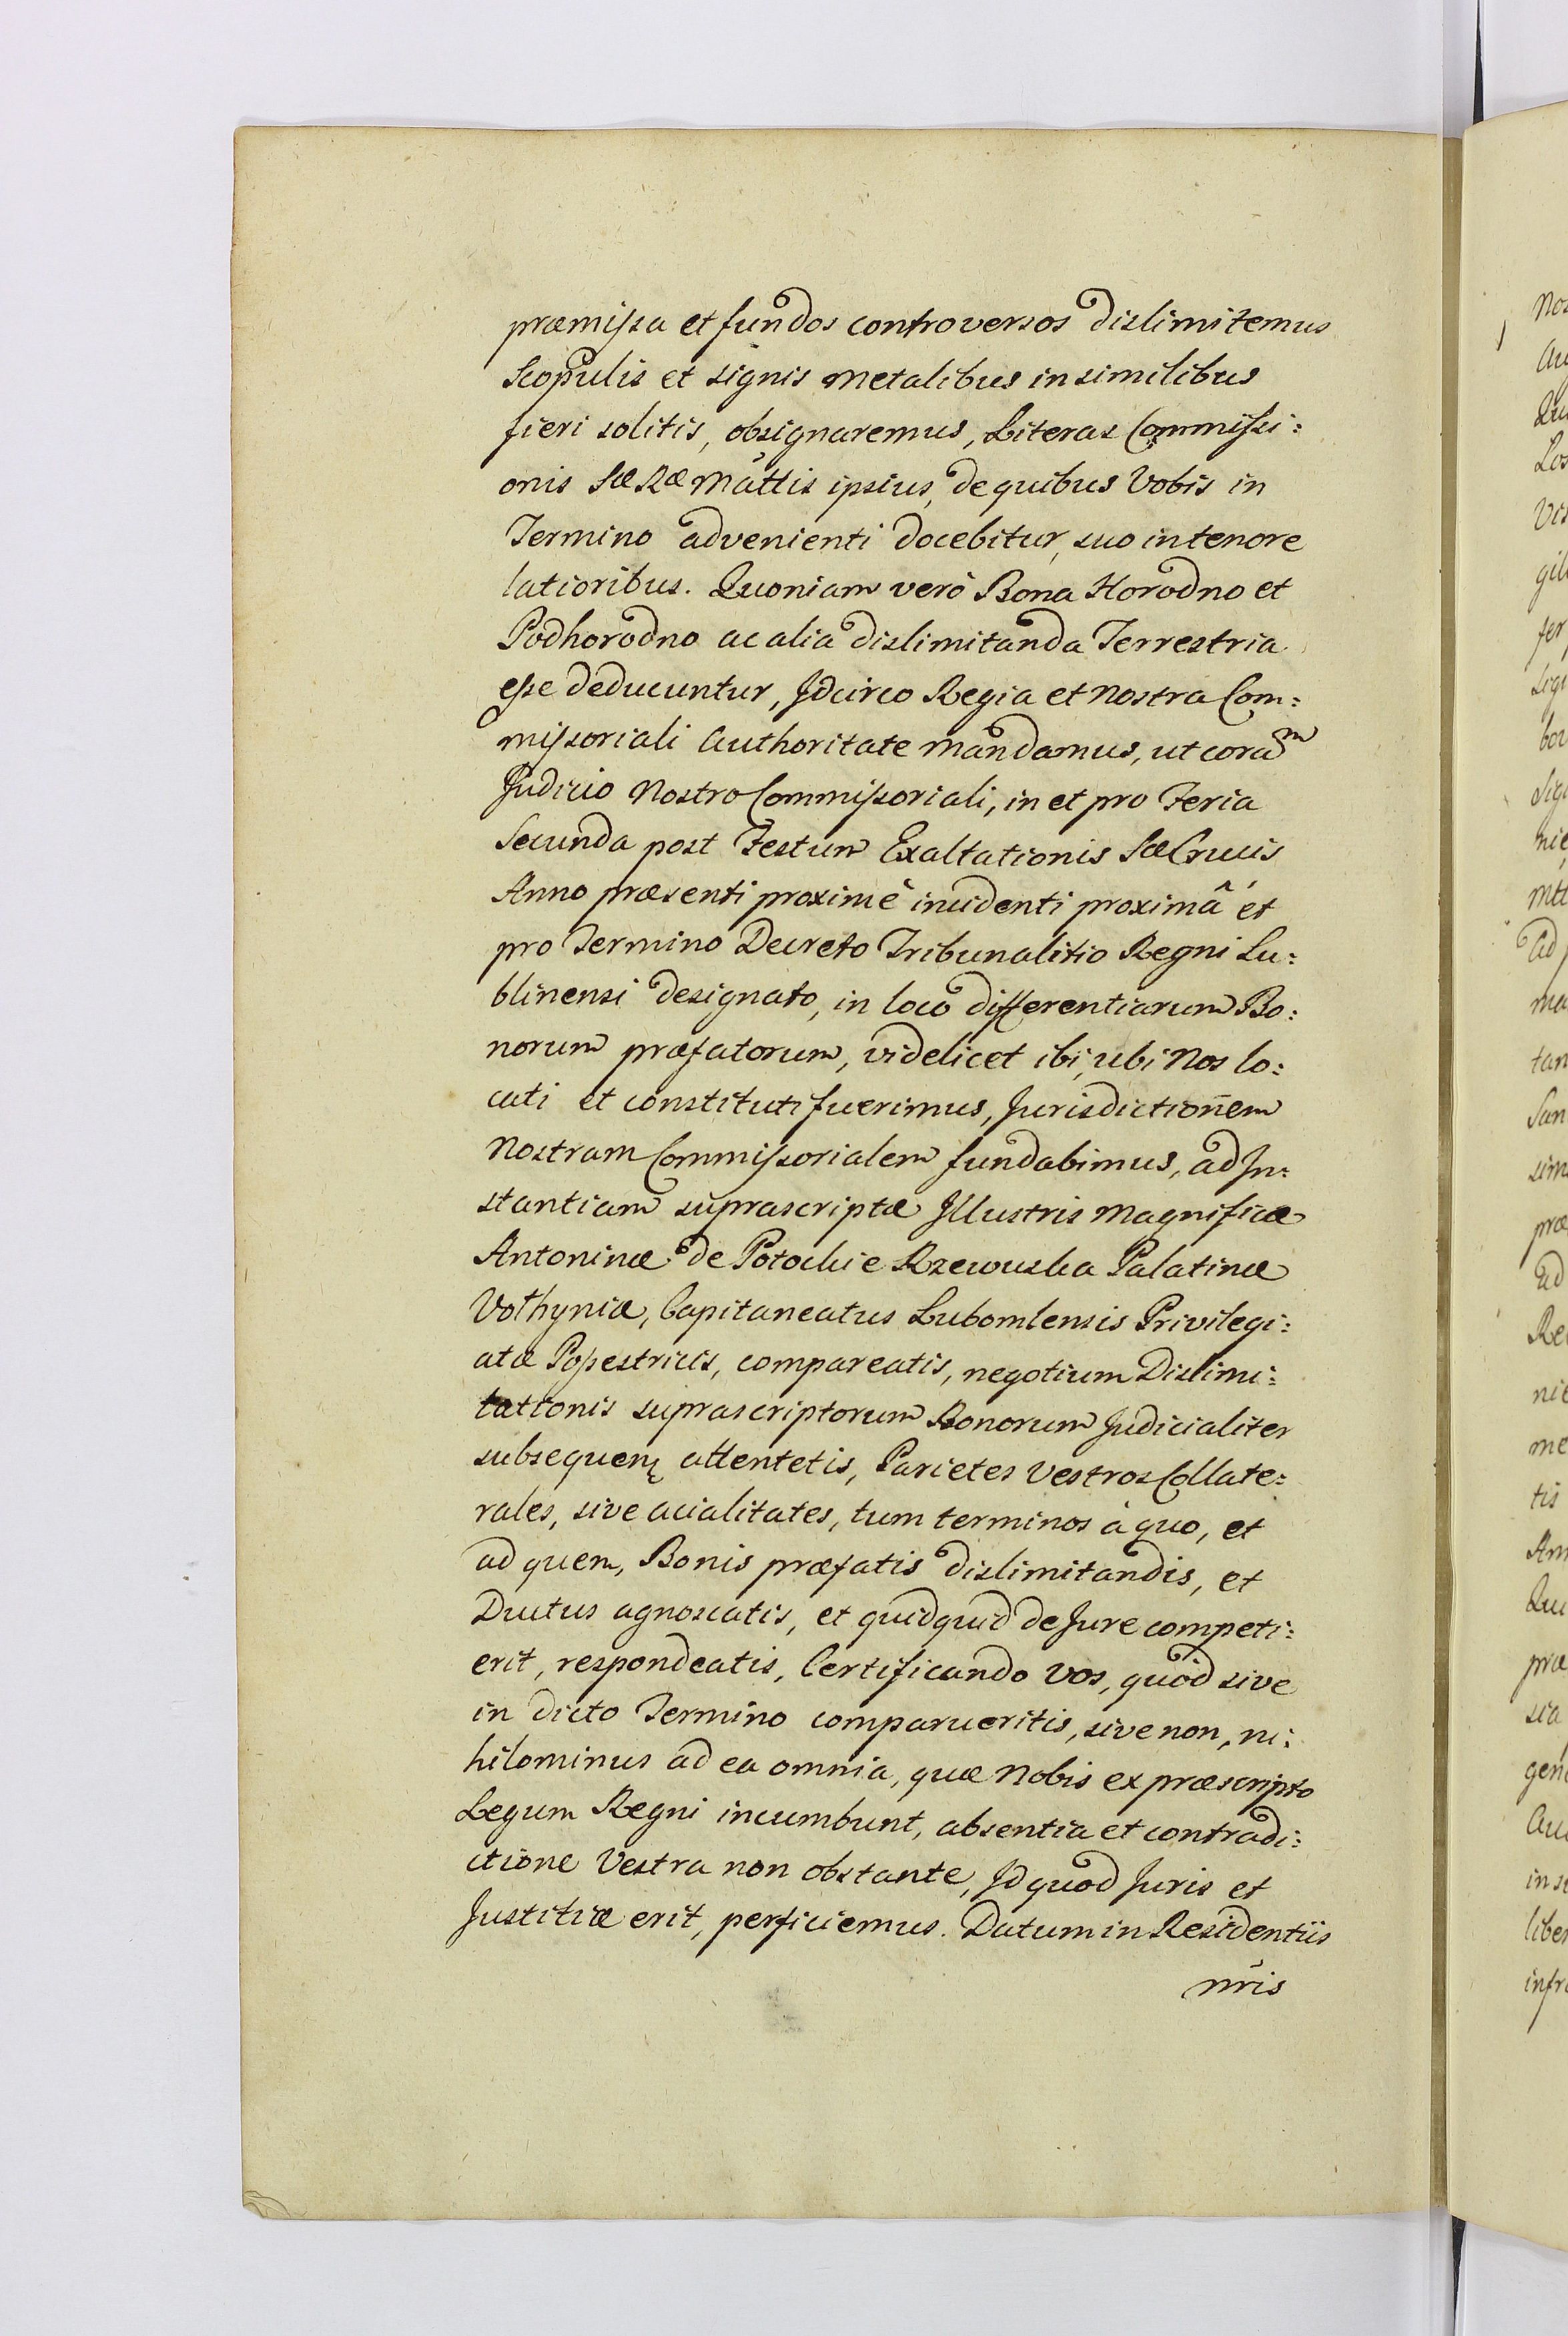 præmissa et fundos controversos dislimitemus
Scopulis et signis metalibus in similibus
fieri solitis, obsignaremus, Literas Commissi:
onis Sæ Ræ Mattis ipsius, de quibus Vobis in
Termino advenienti docebitur, suo in tenore
latioribus. Quoniam verò Bona Horodno et
Podhorodno ac alia dislimitanda Terrestria
esse deducuntur, Idcirco Regia et nostra Com:
missoriali Authoritate mandamus, ut coram
Judicio Nostro Commissoriali, in et pro Feria
Secunda post Festum Exaltationis Sæ Crucis
Anno præsenti proximè incidenti proximâ et
pro Termino Decreto Tribunalitio Regni Lu:
blinensi designato, in loco differentiarum Bo:
norum præfatorum, videlicet ibi, ubi Nos lo:
cati et constituti fuerimus, Jurisdictionem
Nostram Commissorialem fundabimus, ad In:
stantiam suprascriptæ Illustris Magnificæ
Antoninæ de Potockie Rzewuska Palatinæ
Volhyniæ, Capitaneatus Lubomlensis Privilegi:
atæ Possestricis, compareatis, negotium Dislimi:
tationis suprascriptorum Bonorum Judicialiter
subsequens attentetis, Parietes vestros Collate:
rales, sive acialitates, tum terminos à quo, et
ad quem, Bonis præfatis dislimitandis, et
Ductus agnoscatis, et quidquid de Jure competi:
erit, respondeatis, Certificando vos, quòd sive
in dicto Termino comparueritis, sive non, ni:
hilominus ad ea omnia, quæ Nobis ex præscripto
Legum Regni incumbunt, absentia et contradi:
ctione Vestra non obstante, Id quod Juris et
Justitiæ erit, perficiemus. Datum in Residentiis
nris